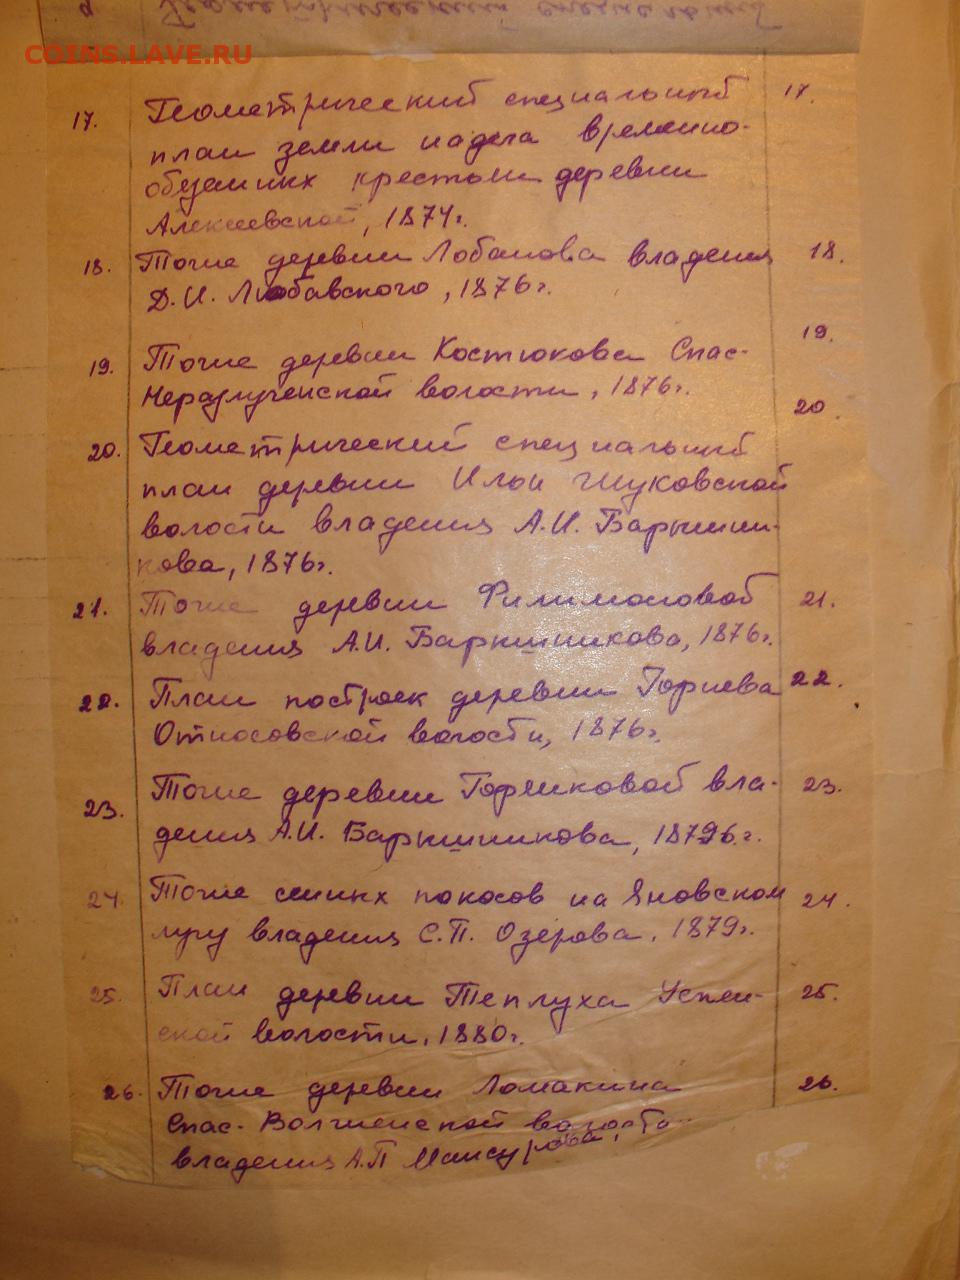 Геометрический специальный
COINS.LAVE.RU
17. Геометрический специальный 17.
план земли надела временно-
обязанных крестьян деревни
Алексеевской, 1874г.
18. Тоже деревни Лобанова владения 18.
Д.И. Любавского, 1876г.
19. Тоже деревни Костюкова Спас- 19.
Неразлученской волости, 1876г.
20. Геометрический специальный 20.
план деревни Ильи Жуковской
волости владения А.И. Барышни-
кова, 1876г.
21. Тоже деревни Филимоновой 21.
владения А.И. Барышникова, 1876г.
22. План построек деревни Горнева 22.
Относовской волости, 1876г.
23. Тоже деревни Горяиковой вла- 23.
дения А.И. Барышникова, 1876.г.
24. Тоже сенных покосов на Яновском 24.
лугу владения С.П. Озерова, 1879г.
25. План деревни Теплуха Успен- 25.
ской волости, 1880г.
26. Тоже деревни Ломакина 26.
Спас-Волженской волости
владения А.П Мансурова,